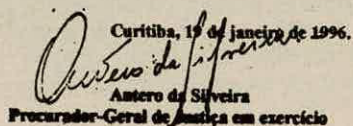 Curitiba, 19 de janeiro de 1996.
Antero da Silveira
Antero da Silveira
Procurador-Geral de Justiça em exercício